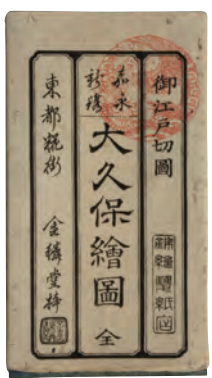 御江戸切圖
嘉永
新鐫
大久保繪圖 全
東都麹街 金鱗堂梓